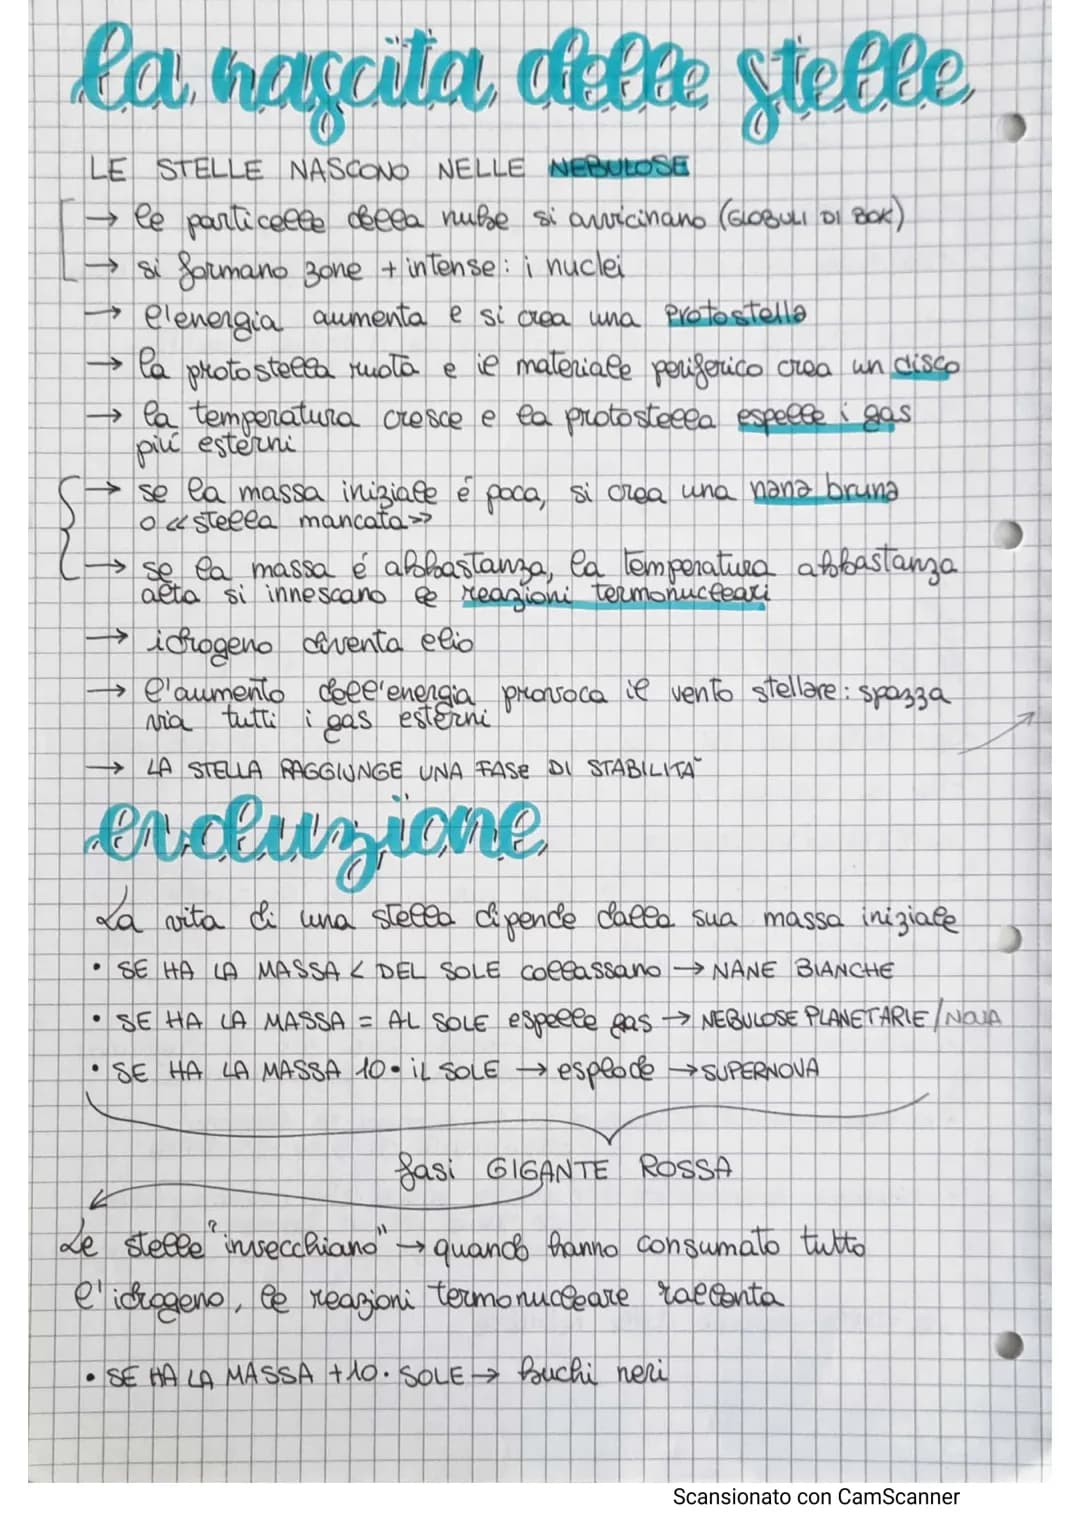 la nascita delle stelle
LE STELLE NASCONO NELLE NEBULOSE
→ le particelle della nube si avvicinano (GLOBULI DI BOK)
→ si formano zone + intense: i nuclei
→ l'energia aumenta e si crea una protostella
→ la protostella ruota e il materiale periferico crea un disco
→ la temperatura cresce e la protostella espelle i gas
più esterni
→ se la massa iniziale é poca, si crea una nana bruna
o «stella mancata»
→ se la massa é abbastanza, la temperatura abbastanza
alta si innescano le reazioni termonucleari
→ idrogeno diventa elio
→ l'aumento dell'energia provoca il vento stellare: spazza
via tutti i gas esterni
→ LA STELLA RAGGIUNGE UNA FASE DI STABILITA'
evoluzione
La vita di una stella dipende dalla sua massa iniziale
• SE HA LA MASSA < DEL SOLE collassano → NANE BIANCHE
• SE HA LA MASSA = AL SOLE espelle gas → NEBULOSE PLANETARIE/NOVA
• SE HA LA MASSA 10• iL SOLE → esplode → SUPERNOVA
fasi GIGANTE ROSSA
Le stelle "invecchiano" → quando hanno consumato tutto
l'idrogeno, le reazioni termonucleare rallenta
• SE HA LA MASSA +10• SOLE → buchi neri
Scansionato con CamScanner